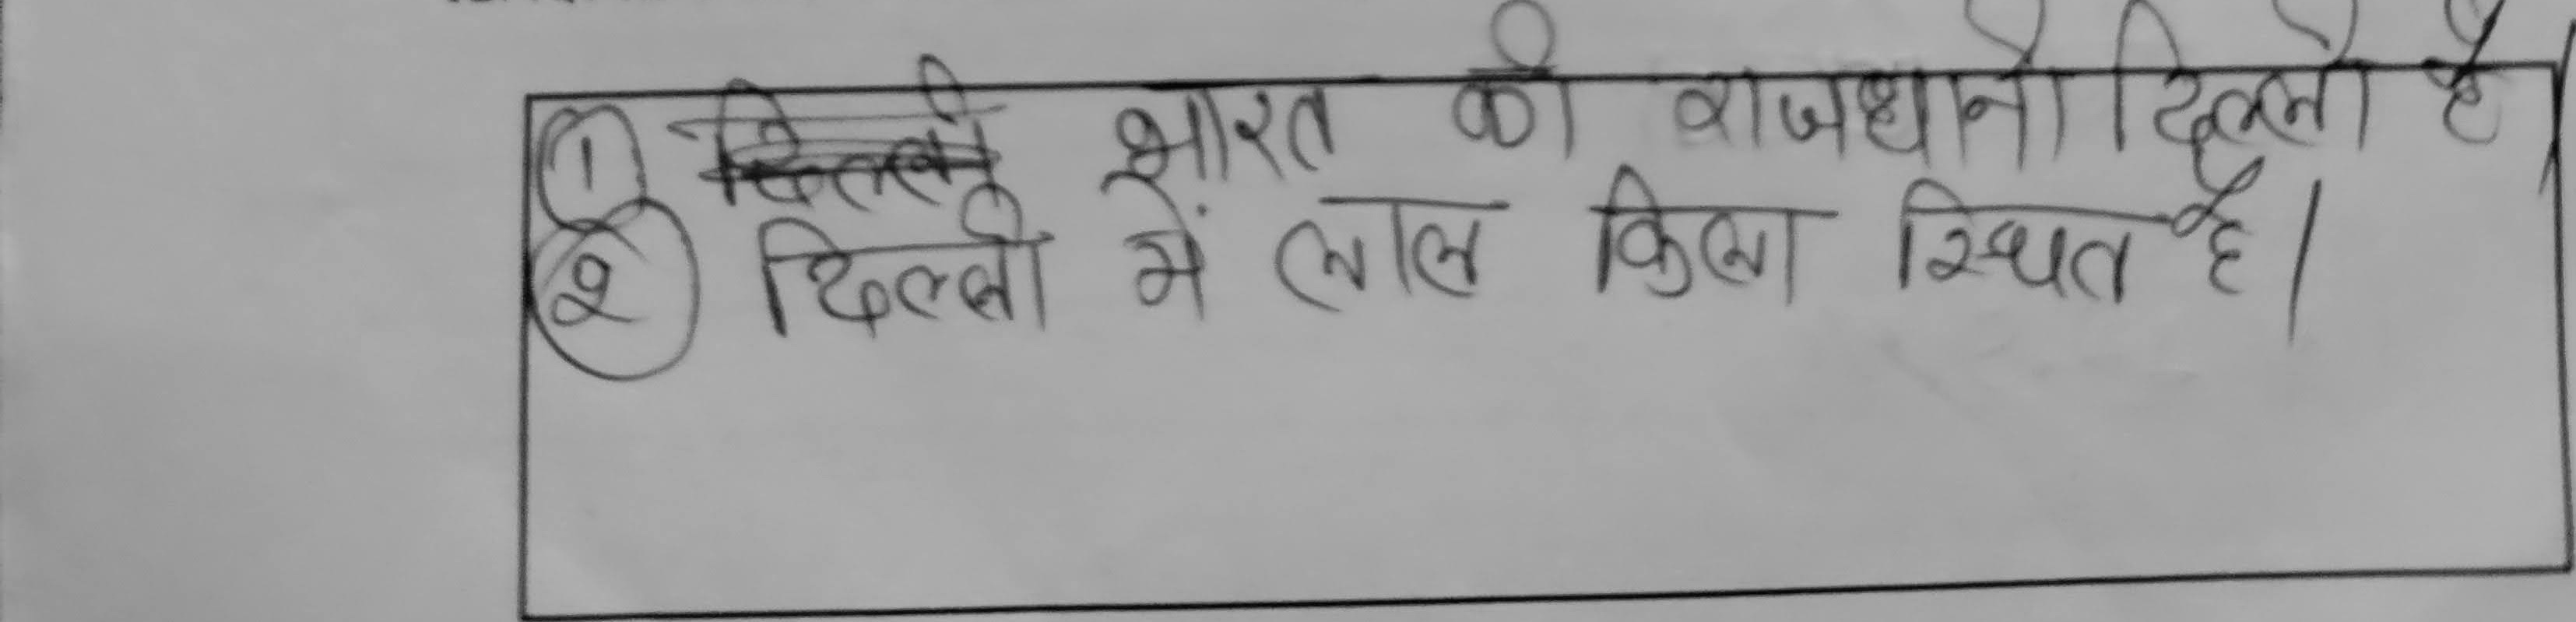 ① भारत की राजधानी दिल्ली है।
② दिल्ली में लाल किला स्थित है।